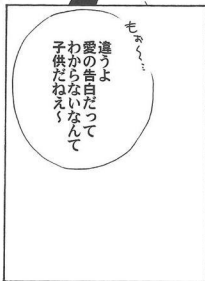 もぉ〜…
違うよ
愛の告白だって
わからないなんて
子供だねえ〜